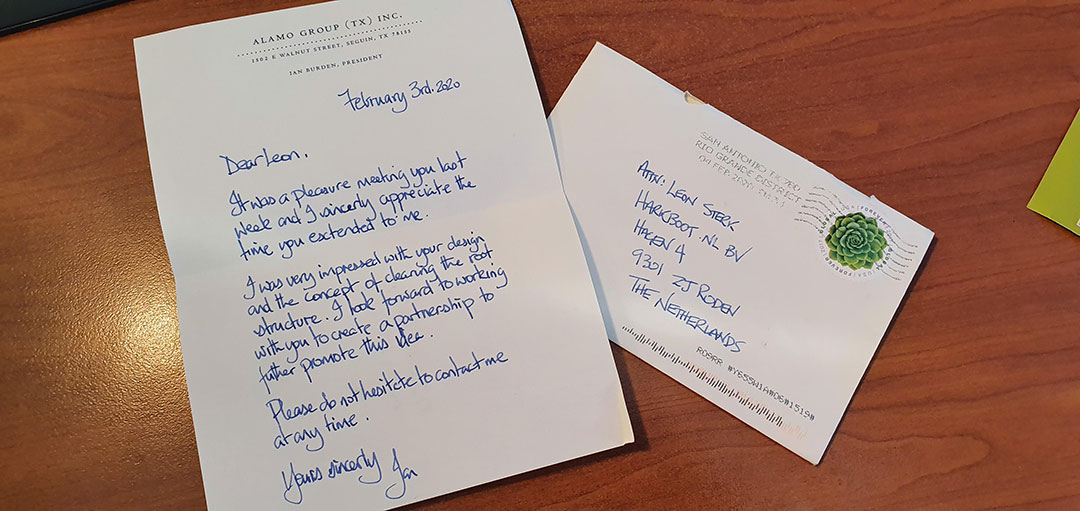 ALAMO GROUP (TX) INC.
1502 E WALNUT STREET, SEGUIN, TX 78155
IAN BURDEN, PRESIDENT
February 3rd. 2020
Dear Leon,
It was a pleasure meeting you last
week and I sincerly appreciate the
time you esctended to me.
I was very impressed with your design
and the concept of cleaning the root
structure. I look forward to working
with you to create a partnership to
futher promote this idea.
Please do not hesitate to contact me
at any time.
Yours sincerly Ian
SAN ANTONIO TX 780
RIO GRANDE DISTRICT
04 FEB 2020
ATTN: LEON STERK
HARKBOOT.NL BV
HAGEN 4
9301 ZJ RODEN
THE NETHERLANDS
GLOBAL USA FOREVER 2017